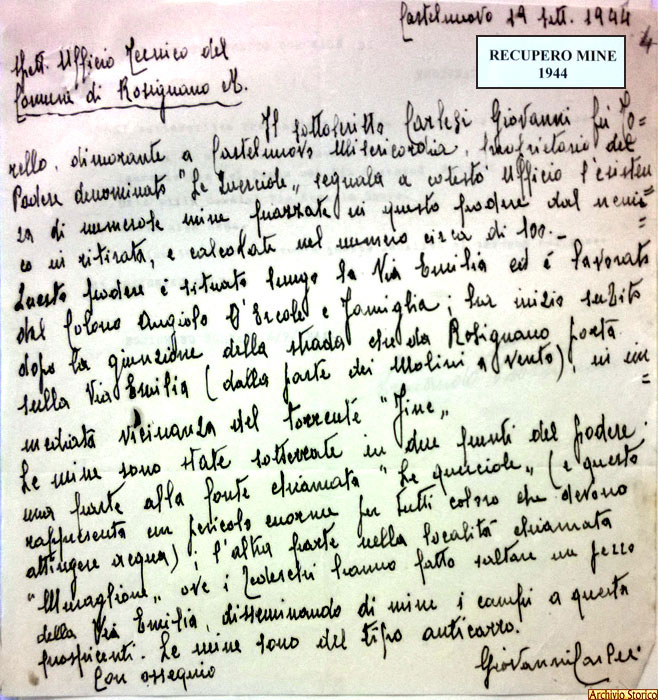 Castelnuovo 19 Sett. 1944
4
RECUPERO MINE
1944
Spett. Ufficio Tecnico del
Comune di Rosignano M.
Il sottoscritto Carlesi Giovanni fu To=
rello, dimorante a Castelnuovo Misericordia, proprietario del
Podere denominato "Le Querciole„ segnala a cotesto Ufficio l'esisten=
za di numerose mine piazzate in questo podere dal nemi=
co in ritirata, e calcolate nel numero circa di 100.—
Questo podere è situato lungo la Via Emilia ed è lavorato
dal Colono Angiolo D'Ercole e famiglia; ha inizio subito
dopo la giunzione della strada che da Rosignano porta
sulla Via Emilia (dalla parte dei Molini a vento), in im=
mediata vicinanza del torrente "Fine„
Le mine sono state sotterrate in due punti del podere:
una parte alla fonte chiamata "Le querciole„ (e questo
rappresenta un pericolo enorme per tutti coloro che devono
attingere acqua); l'altra parte nella località chiamata
"Muraglione„ ove i Tedeschi hanno fatto saltare un pezzo
della Via Emilia, disseminando di mine i campi a questa
prospicenti. Le mine sono del tipo anticarro.
Con ossequio
Giovanni Carlesi
Archivio Storico